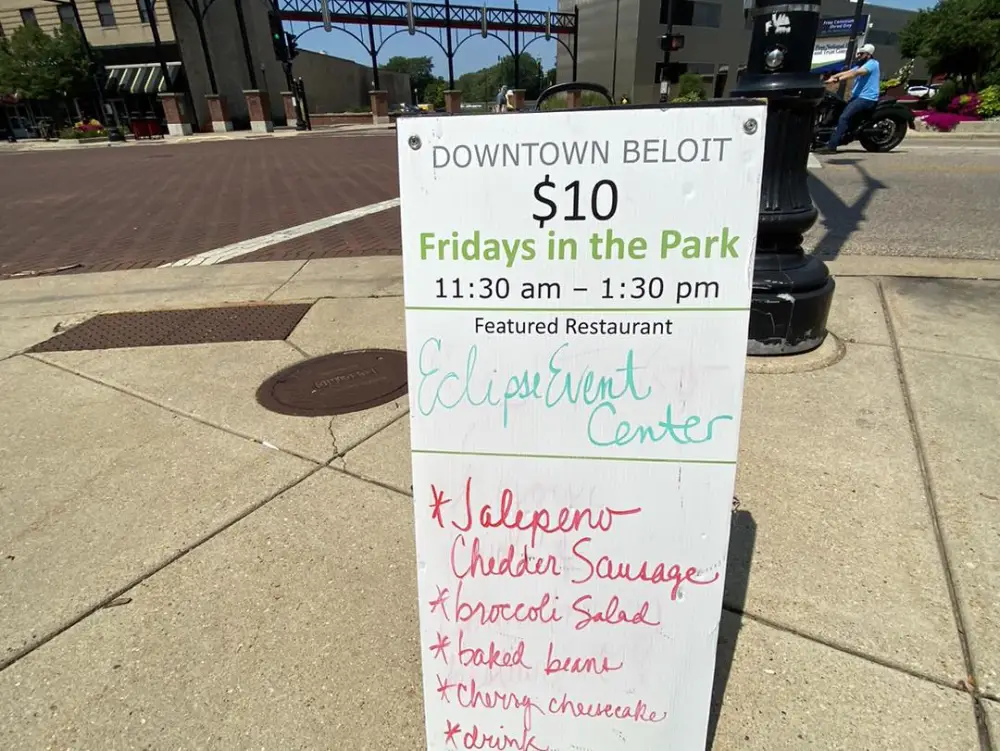 DOWNTOWN BELOIT
$10
Fridays in the Park
11:30 am – 1:30 pm
Featured Restaurant
Eclipse Event
Center
*Jalepeno
Chedder Sausage
*broccoli Salad
*baked beans
*cherry cheesecake
*drink